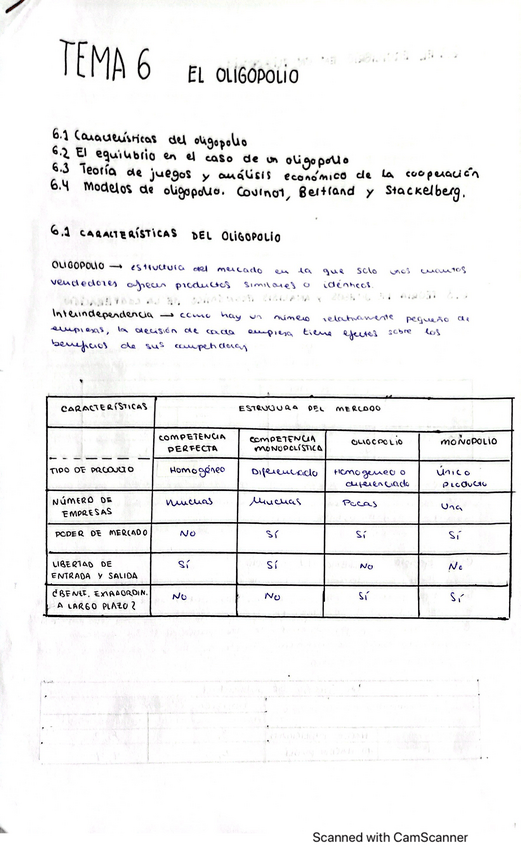 TEMA 6 EL OLIGOPOLIO
6.1 Características del oligopolio
6.2 El equilibrio en el caso de un oligopolio
6.3 Teoría de juegos y análisis económico de la cooperación
6.4 Modelos de oligopolio. Cournot, Bertrand y Stackelberg.
6.1 CARACTERÍSTICAS DEL OLIGOPOLIO
OLIGOPOLIO → estructura del mercado en la que solo unos cuantos
vendedores ofrecen productos similares o idénticos.
Interindependencia → como hay un número relativamente pequeño de
empresas, la decisión de cada empresa tiene efectos sobre los
beneficios de sus competidores
CARACTERÍSTICAS ESTRUCTURA DEL MERCADO
COMPETENCIA PERFECTA COMPETENCIA MONOPOLÍSTICA OLIGOPOLIO MONOPOLIO
TIPO DE PRODUCTO Homogéneo Diferenciado Homogeneo o diferenciado Único producto
NÚMERO DE EMPRESAS Muchas Muchas Pocas Una
PODER DE MERCADO NO SÍ SÍ SÍ
LIBERTAD DE ENTRADA Y SALIDA SÍ SÍ NO No
¿BENEF. EXTRAORDIN. A LARGO PLAZO? NO NO SÍ SÍ
Scanned with CamScanner